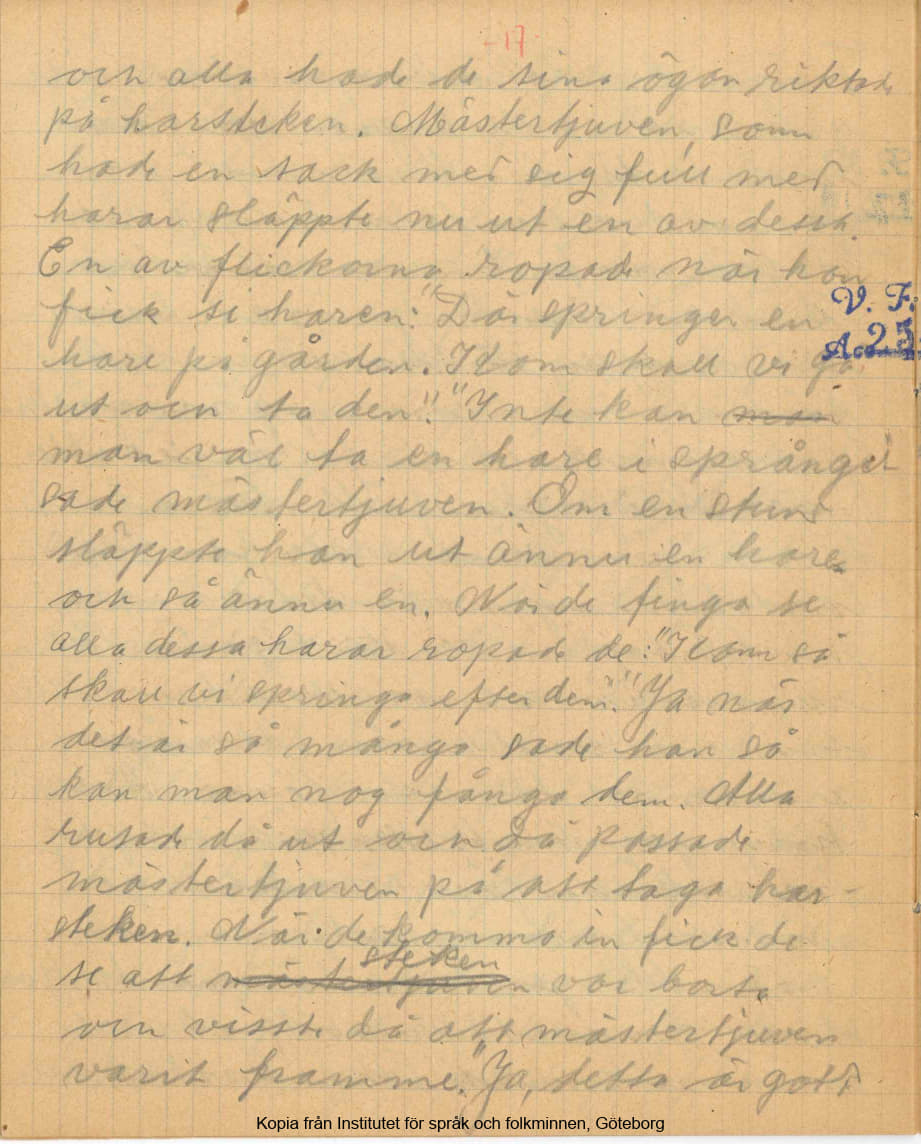 -17
och alla hade de sina ögon riktade
på harsteken. Mästertjuven, som
hade en säck med sig full med
harar släppte nu ut en av dessa.
En av flickorna ropade när hon
fick se haren: "Där springer en
V. F.
hare på gården. Kom skall vi gå
ut och ta den". "Inte kan man
man väl ta en hare i språnget"
sade mästertjuven. Om en stund
släppte han ut ännu en hare
och så ännu en. När de fingo se
alla dessa harar ropade de: "Kom så
skall vi springa efter dem". "Ja när
det är så många sade han så
kan man nog fånga dem. Alla
rusade då ut och då passade
mästertjuven på att taga har-
steken. När de kommo in fick de
se att mästertjuven steken var borta
och visste då att mästertjuven
varit framme. "Ja, detta är gott
Kopia från Institutet för språk och folkminnen, Göteborg